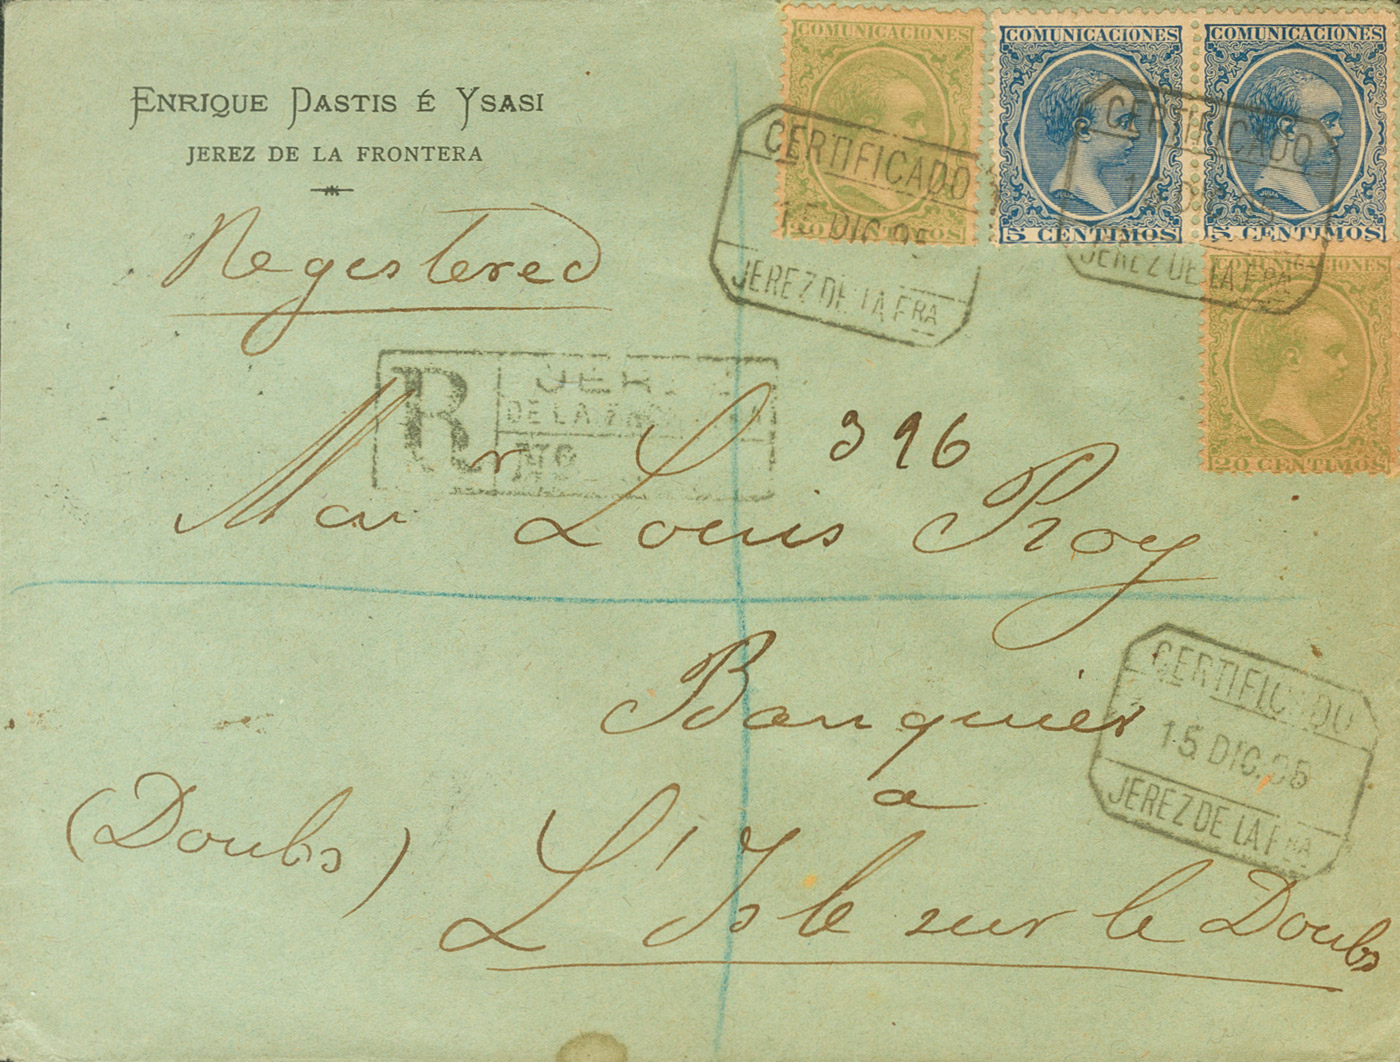 COMUNICACIONES
COMUNICACIONES
COMUNICACIONES
ENRIQUE PASTIS É YSASI
JEREZ DE LA FRONTERA
CERTIFICADO
15 DIC 95
JEREZ DE LA FRA
20 CENTIMOS
5 CENTIMOS
5 CENTIMOS
CERTIFICADO
JEREZ DE LA FRA
COMUNICACIONES
20 CENTIMOS
Registered
R
JEREZ
DE LA
No
396
Mon Louis Roy
Banquier
a
CERTIFICADO
15 DIC. 95
JEREZ DE LA FRA
(Doubs)
L'Isle sur le Doubs